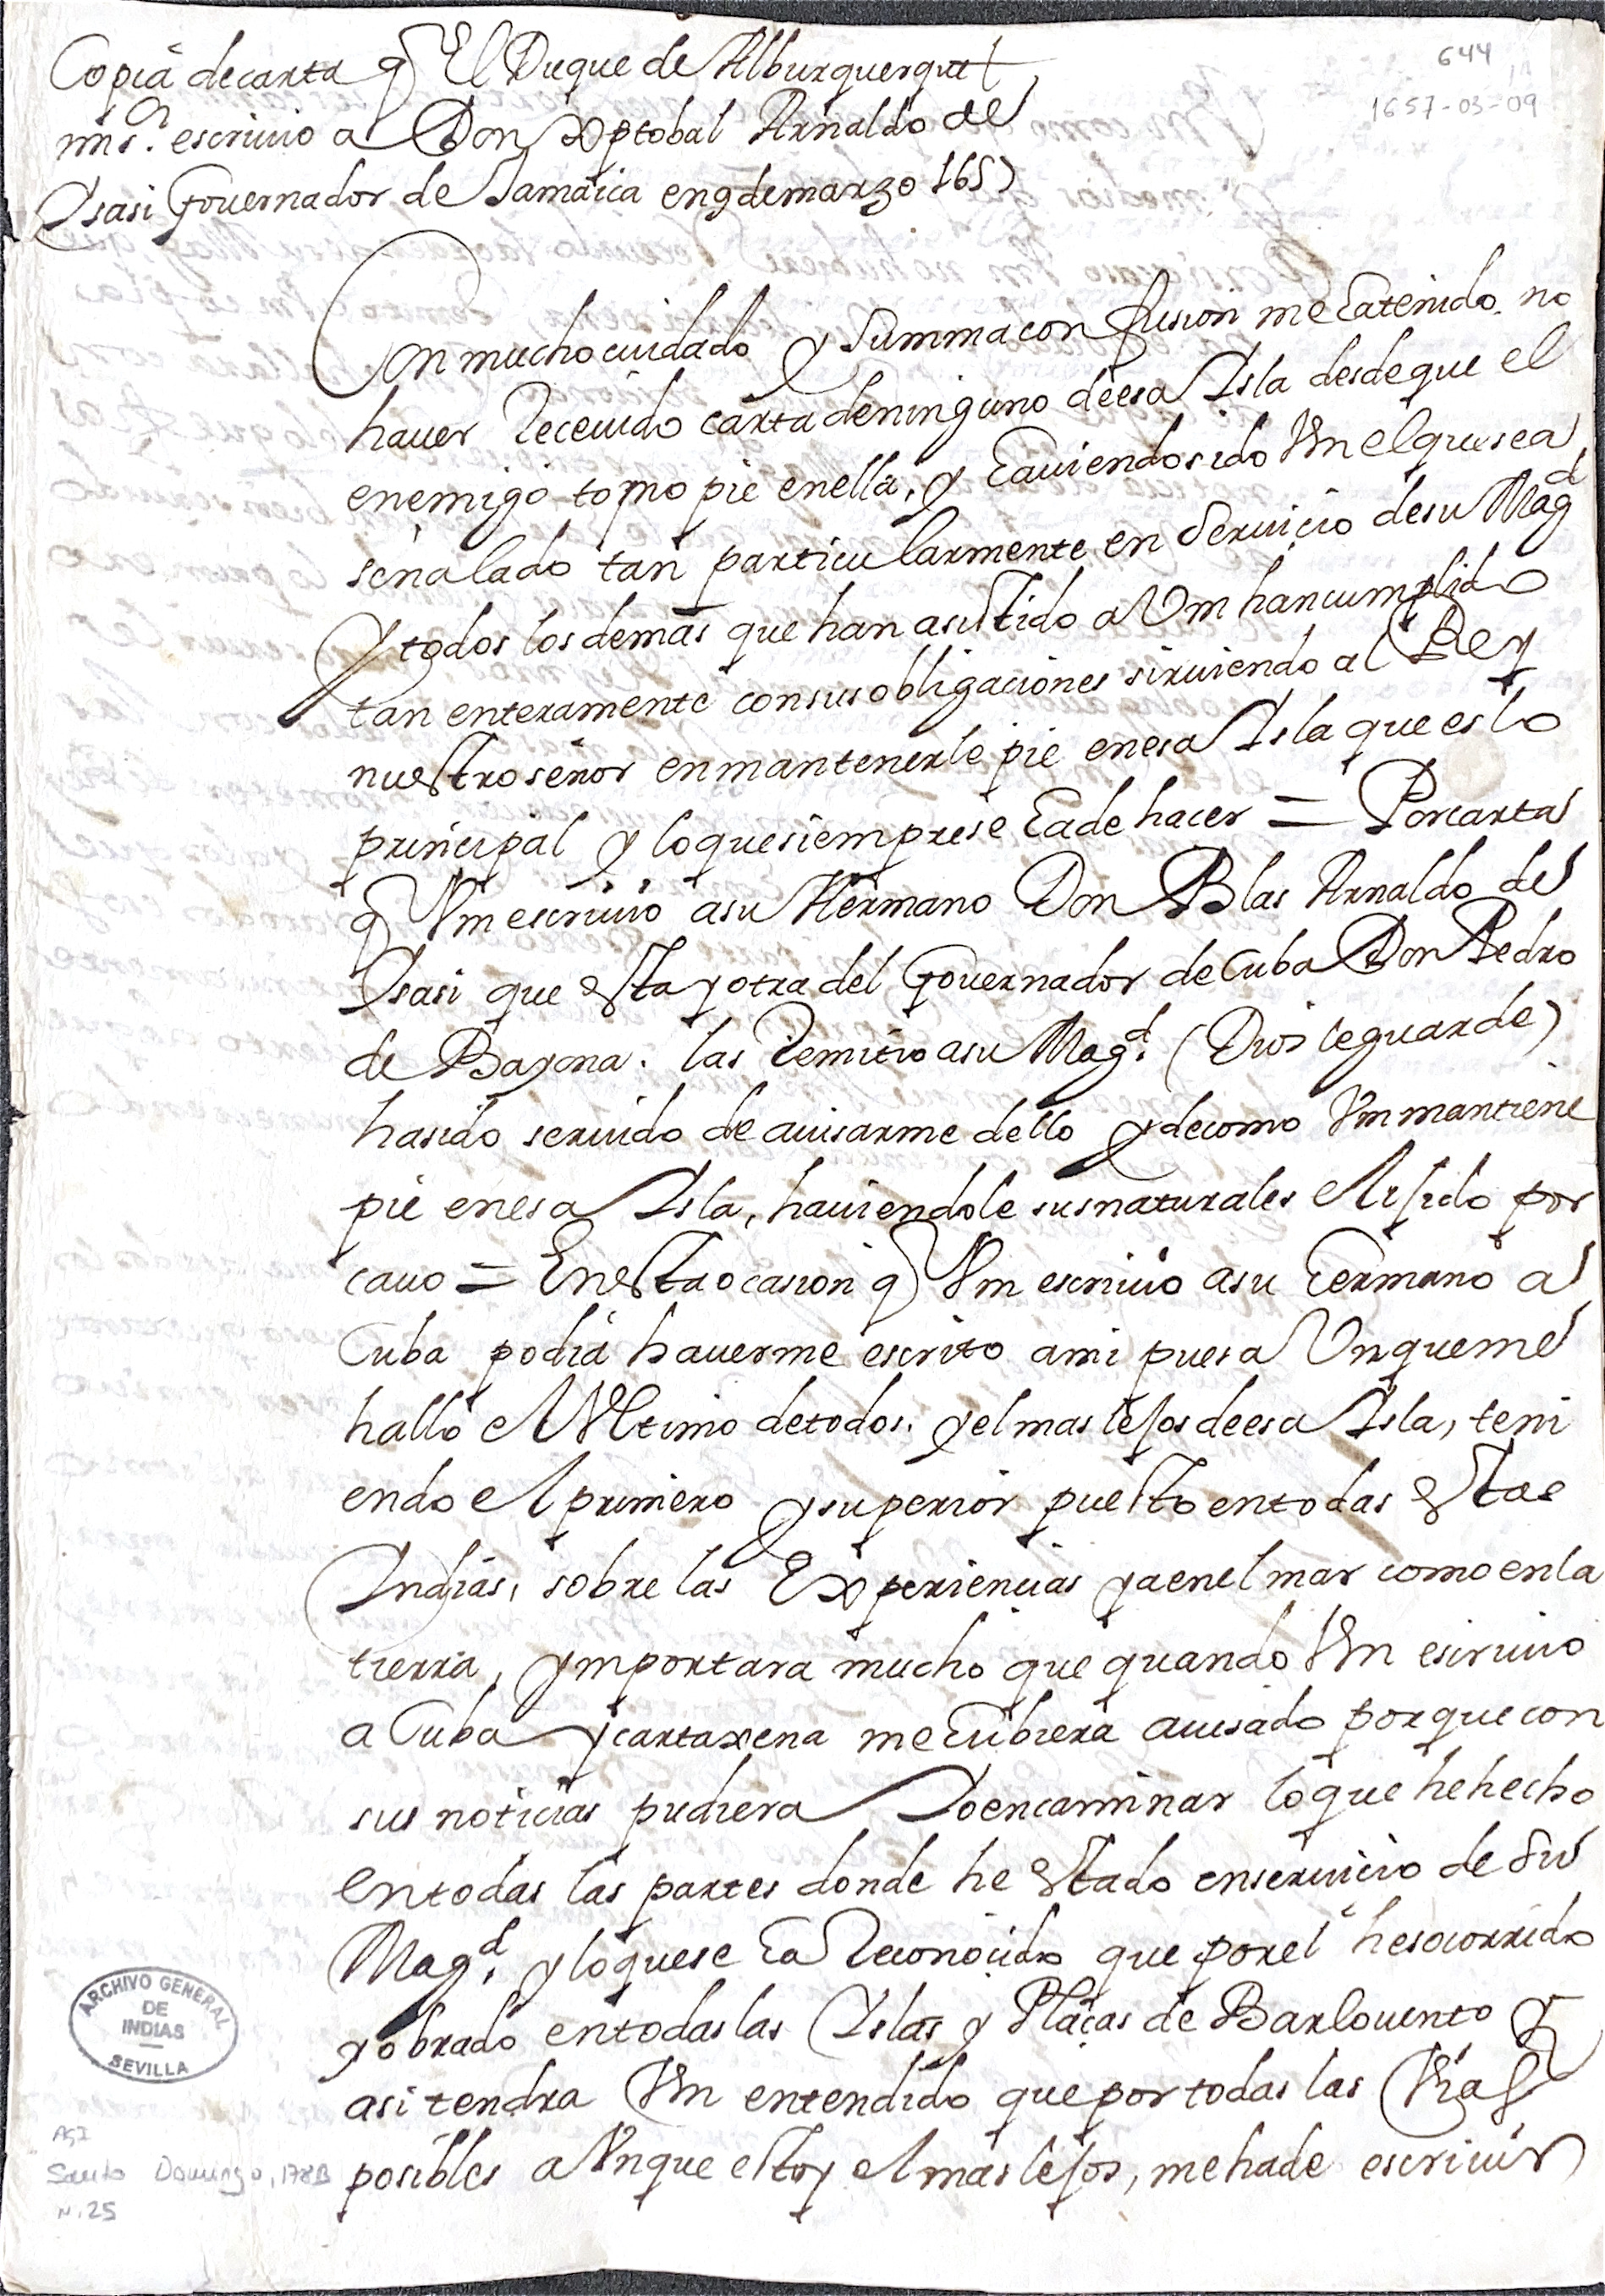 644
1657-03-09
Copia de carta q El Duque de Alburquerque
mi sr. escriuio a Don Xptobal Arnaldo de
Ysasi Gouernador de Jamaica en 9 de marzo 1657
Con mucho cuidado y Summa confusion me ha tenido no
hauer Receuido carta de ninguno de esa Isla desde que el
enemigo tomo pie en ella, y hauiendo sido Vm el que sea
señalado tan particularmente en Seruicio de su Magd
y todos los demas que han asistido a Vm han cumplido
tan enteramente con sus obligaciones siruiendo al Rey
nuestro señor en mantenerle pie en esa Isla que es lo
principal y lo que siempre se ha de hacer = Por carta
q Vm escriuio a su Hermano Don Blas Arnaldo de
Ysasi que esta y otra del Gouernador de Cuba Don Pedro
de Bayona. las Remitio a su Magd. (Dios le guarde)
ha sido seruido de auisarme dello y de como Vm mantiene
pie en esa Isla, hauiendole sus naturales elijido por
cauo = En esta ocasion q Vm escriuio a su hermano a
Cuba podia hauerme escrito a mi pues aVnque me
hallo el Vltimo de todos. y el mas lejos de esa Isla, teni
endo el primero y superior puesto en todas estas
Indias, sobre las Experiencias ya en el mar como en la
tierra, ymportara mucho que quando Vm escriuio
a Cuba y cartaxena me hubiera auisado porque con
sus noticias pudiera Yo encaminar lo que he hecho
en todas las partes donde he estado en seruicio de Su
Magd. y lo que se ha Reconocido que por el he socorrido
y obrado en todas las Islas y Plaças de Barlouento y
asi tendra Vm entendido que por todas las Vias
posibles aVnque estoy el mas lejos, me ha de escriuir
ARCHIVO GENERAL
DE
INDIAS
SEVILLA
AGI
Santo Domingo, 178B
N. 25